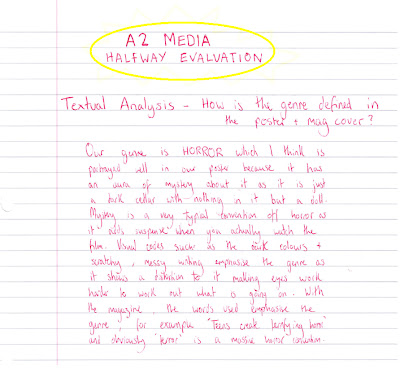 A2 MEDIA
HALFWAY EVALUATION
Textual Analysis - How is the genre defined in
the poster + mag cover?
Our genre is HORROR which I think is
portrayed well in our poster because it has
an aura of mystery about it as it is just
a dark cellar with nothing in it but a doll.
Mystery is a very typical convention off horror as
it adds suspense when you actually watch the
film. Visual codes such as the dark colours +
scratchy, messy writing emphasise the genre as
it shows a distortion to it making eyes work
harder to work out what is going on. With
the magazine, the words used emphasise the
genre, for example "Teens create terrifying horror"
and obviously 'terror' is a massive horror convention.